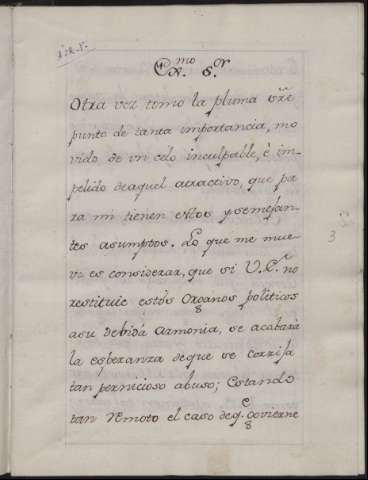 Exmo. Sr.
Otra vez tomo la pluma sre.
punto de tanta importancia, mo
vido de un celo inculpable, è im
pelido deaquel atractivo, que pa
ra mi tienen estos y semejan-
tes asumptos. Lo que me mue-
ve es considerar, que si V.E. no
restituie estos Organos politicos
asu debida Armonia, se acabarà
la esperanza deque se corrija
tan pernicioso abuso; Estando
tan remoto el caso deq.e govierne
3